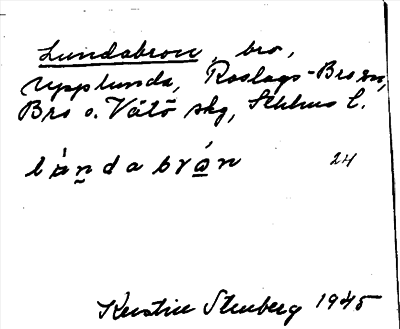 Lundabron, bro,
Upplunda, Roslags-Bro sn,
Bro o. Vätö skg, Sthlms l.
lùndabrån 24
Kerstin Stenberg 1945